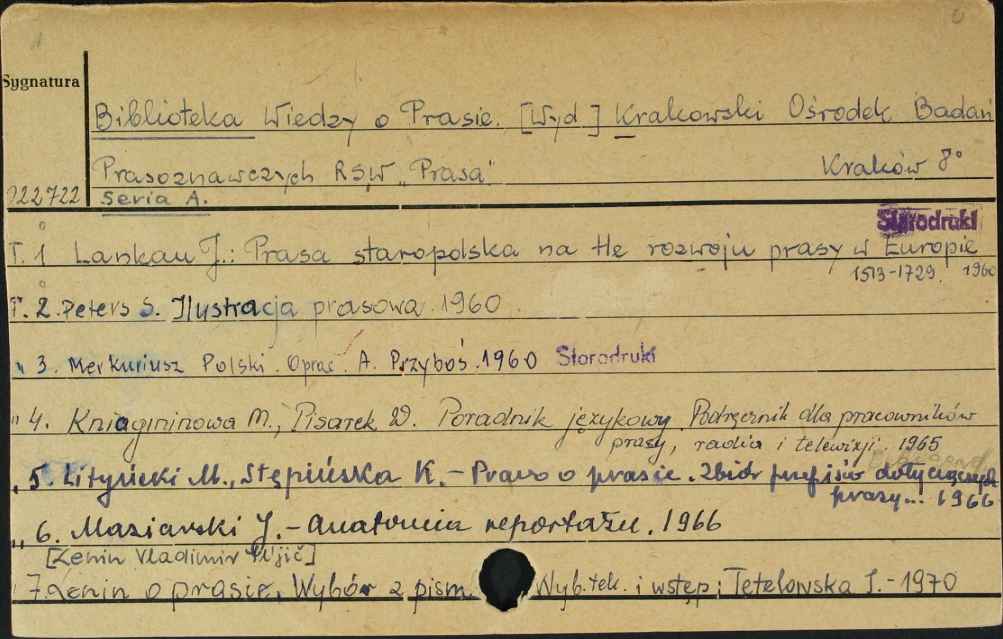 Sygnatura
Biblioteka Wiedzy o Prasie. [Wyd.] Krakowski Ośrodek Badań
Prasoznawczych RSW „Prasa" Kraków 8°
022722 Seria A.
Starodruki
T. 1 Lankau J.: Prasa staropolska na tle rozwoju prasy w Europie
1513-1729. 1960
T. 2. Peters S. Ilustracja prasowa. 1960
" 3. Merkuriusz Polski. Oprac. A. Przyboś. 1960 Starodruki
" 4. Kniagininowa M., Pisarek W. Poradnik językowy. Podręcznik dla pracowników
prasy, radia i telewizji. 1965
" 5. Lityński M., Stępińska K. - Prawo o prasie. Zbiór przepisów dotyczących
prasy... 1966
" 6. Maziarski J. - Anatomia reportażu. 1966
[Lenin Vladimir Il'jič]
" 7. Lenin o prasie. Wybór z pism. Wyb. tek. i wstęp: Tetelowska I. - 1970